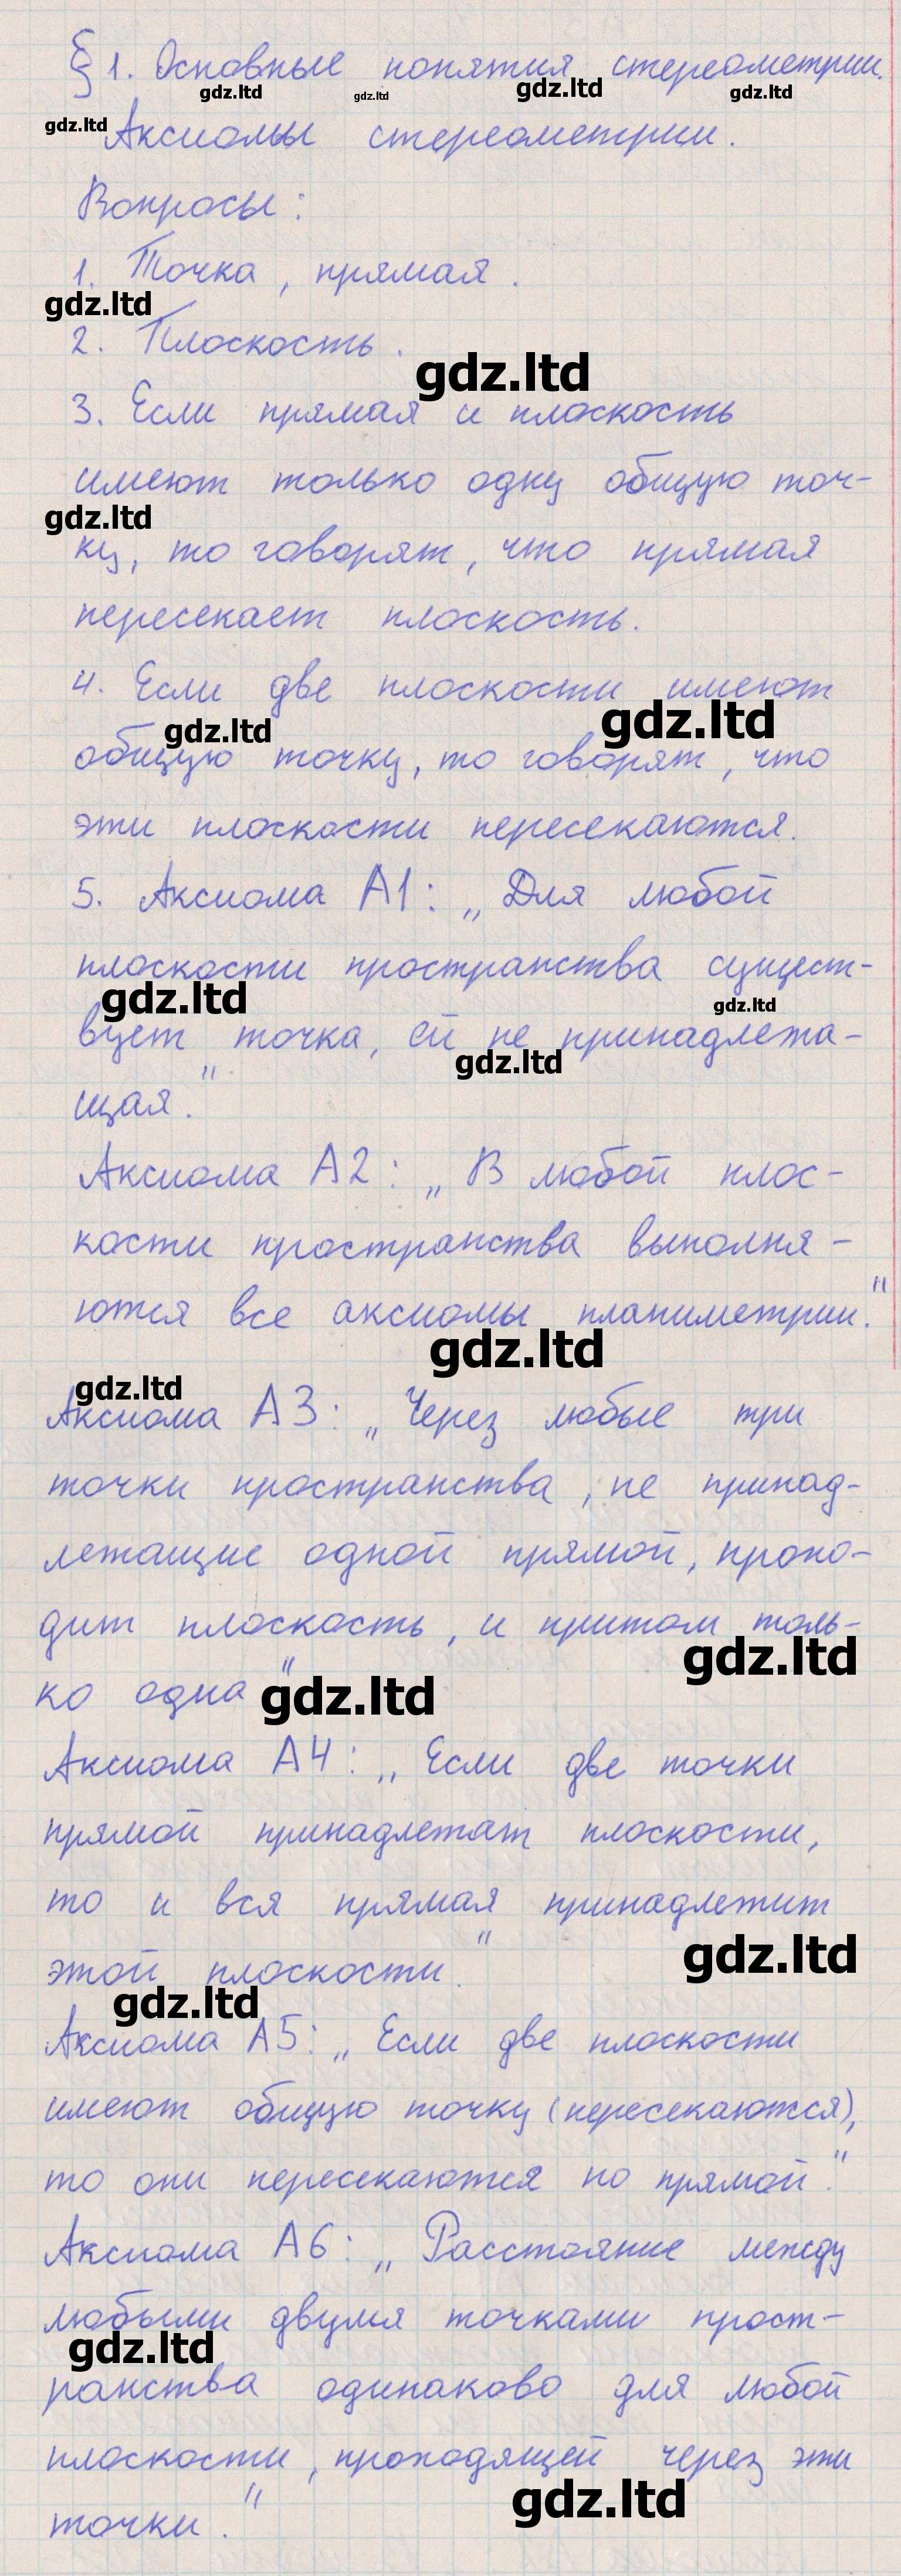 § 1. Основные понятия стереометрии.
gdz.ltd gdz.ltd gdz.ltd gdz.ltd
gdz.ltd
Аксиомы стереометрии.
Вопросы:
1. Точка, прямая.
gdz.ltd
2. Плоскость.
gdz.ltd
3. Если прямая и плоскость
имеют только одну общую точ-
gdz.ltd
ку, то говорят, что прямая
пересекает плоскость.
4. Если две плоскости имеют
gdz.ltd gdz.ltd
общую точку, то говорят, что
эти плоскости пересекаются.
5. Аксиома А1: „Для любой
плоскости пространства сущест-
gdz.ltd gdz.ltd
вует точка, ей не принадлежа-
gdz.ltd
щая."
Аксиома А2: „В любой плос-
кости пространства выполня-
ются все аксиомы планиметрии."
gdz.ltd
gdz.ltd
Аксиома А3: „Через любые три
точки пространства, не принад-
лежащие одной прямой, прохо-
дит плоскость, и притом толь-
gdz.ltd
ко одна" gdz.ltd
Аксиома А4: „Если две точки
прямой принадлежат плоскости,
то и вся прямая принадлежит
этой плоскости."
gdz.ltd
gdz.ltd
Аксиома А5: „Если две плоскости
имеют общую точку (пересекаются),
то они пересекаются по прямой."
Аксиома А6: „Расстояние между
любыми двумя точками прост-
gdz.ltd
ранства одинаково для любой
плоскости, проходящей через эти
gdz.ltd
точки."